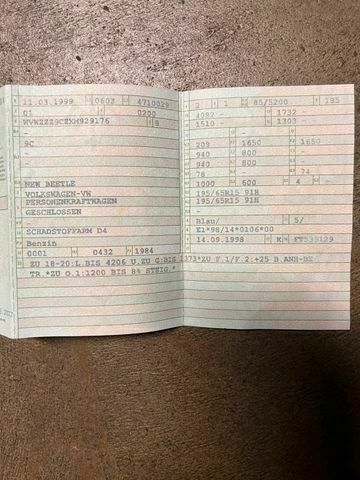 11.03.1999 0603 4710029
01 0200
WVWZZZ9CZXM929176 8
9C
-
-
NEW BEETLE
VOLKSWAGEN-VW
PERSONENKRAFTWAGEN
GESCHLOSSEN
-
SCHADSTOFFARM D4
Benzin
0001 0432 1984
2 1 85/5200 185
4082 - 1732 -
1510 - 1303 -
- -
209 1650 1650
940 800 -
940 800 -
78 - 74
1000 600 4 -
195/65R15 91H
195/65R15 91H
-
Blau/ 5/
E1*98/14*0106*00
14.09.1998 K
ZU 18-20:L.BIS 4206 U.ZU G:BIS 1373*ZU F.1/F.2:+25 B.ANH-BE
TR.*ZU O.1:1200 BIS 8% STEIG.*